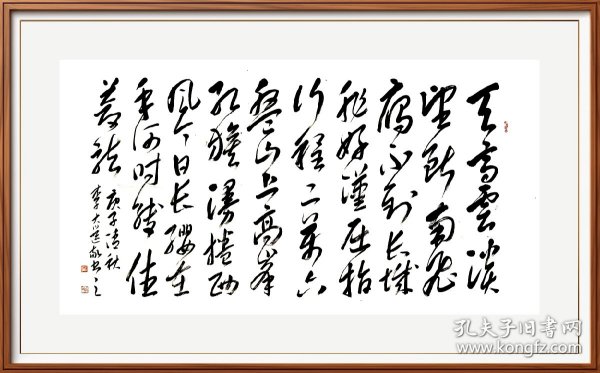 天高雲淡
望断南飛
雁不到长城
非好漢屈指
行程二萬六
盤山上高峯
红旗漫捲西
风今日长缨在
手何时缚住
蒼龍 庚子清秋
李大
孔夫子旧书网
www.kongfz.com